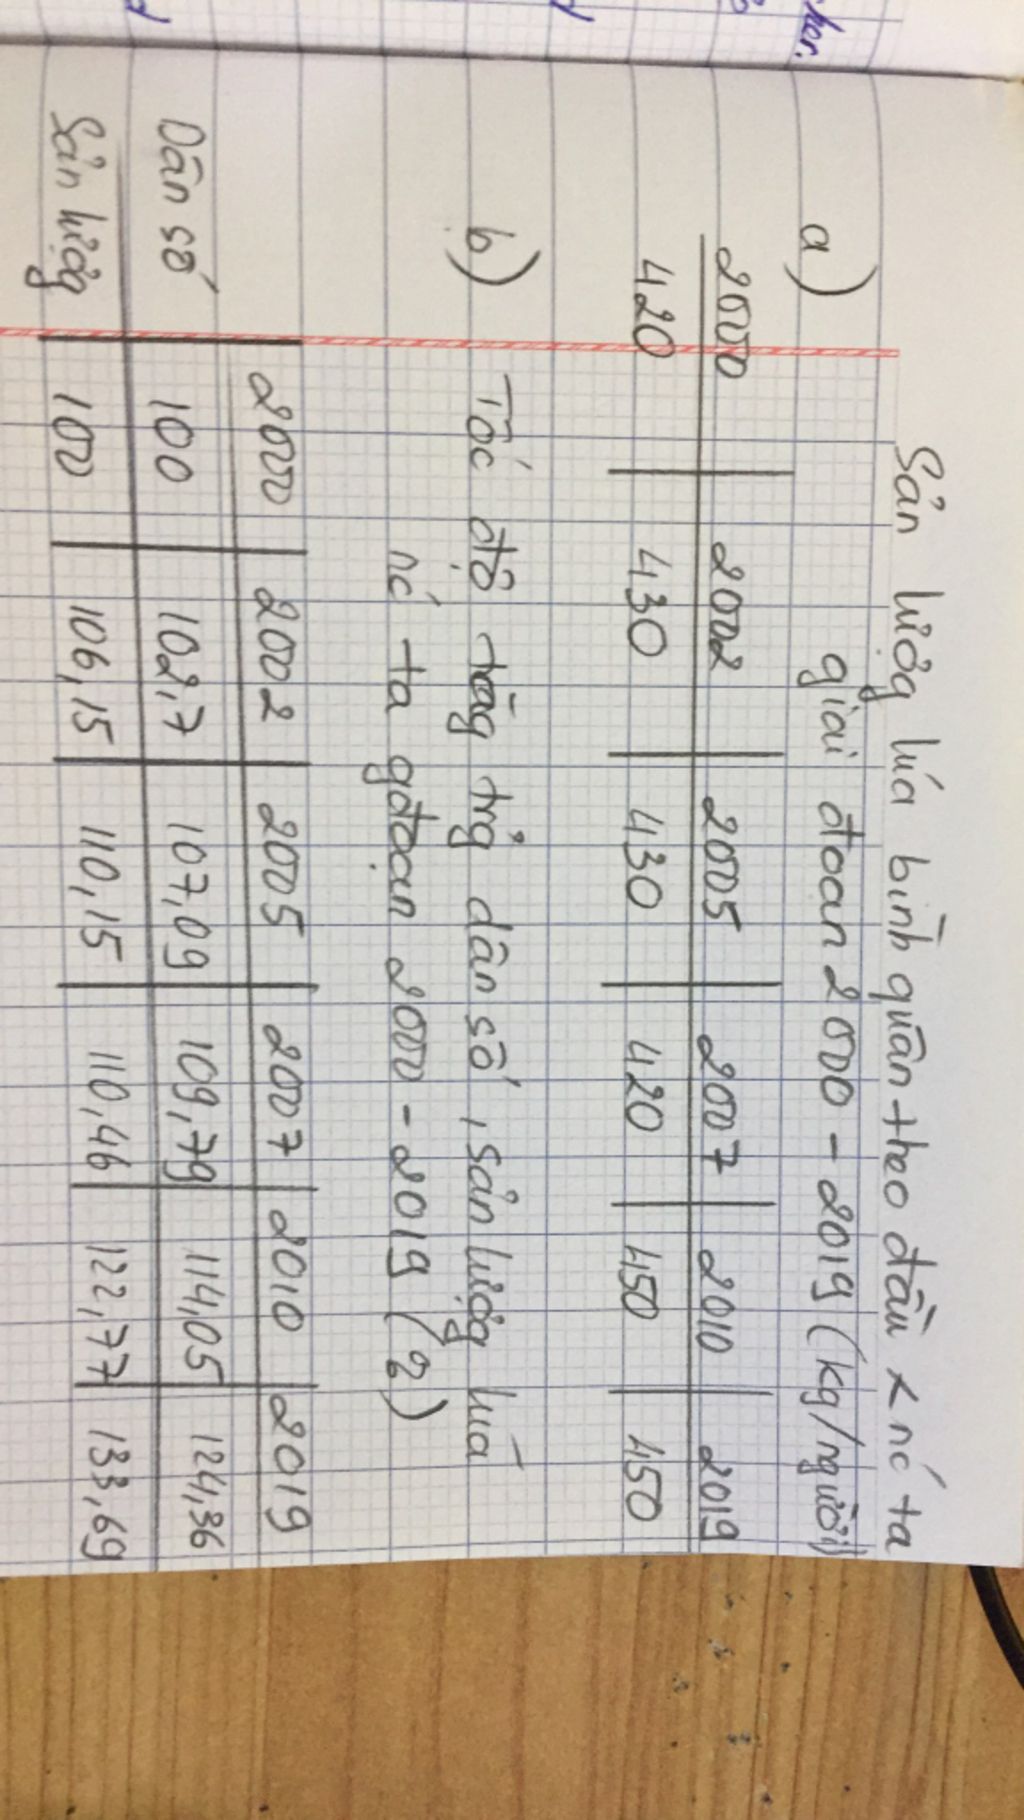 Sản lượg lúa bình quân theo đầu x nć ta
giai đoạn 2000 - 2019 (kg/người)
a)
2000 | 2002 | 2005 | 2007 | 2010 | 2019
420 | 430 | 430 | 420 | 450 | 450
b) Tốc độ tăg trg̉ dân số, sản lượg lúa
nć ta gđoạn 2000 - 2019 (%)
2000 | 2002 | 2005 | 2007 | 2010 | 2019
Dân số | 100 | 102,7 | 107,09 | 109,79 | 114,05 | 124,36
Sản lượg | 100 | 106,15 | 110,15 | 110,46 | 122,77 | 133,69